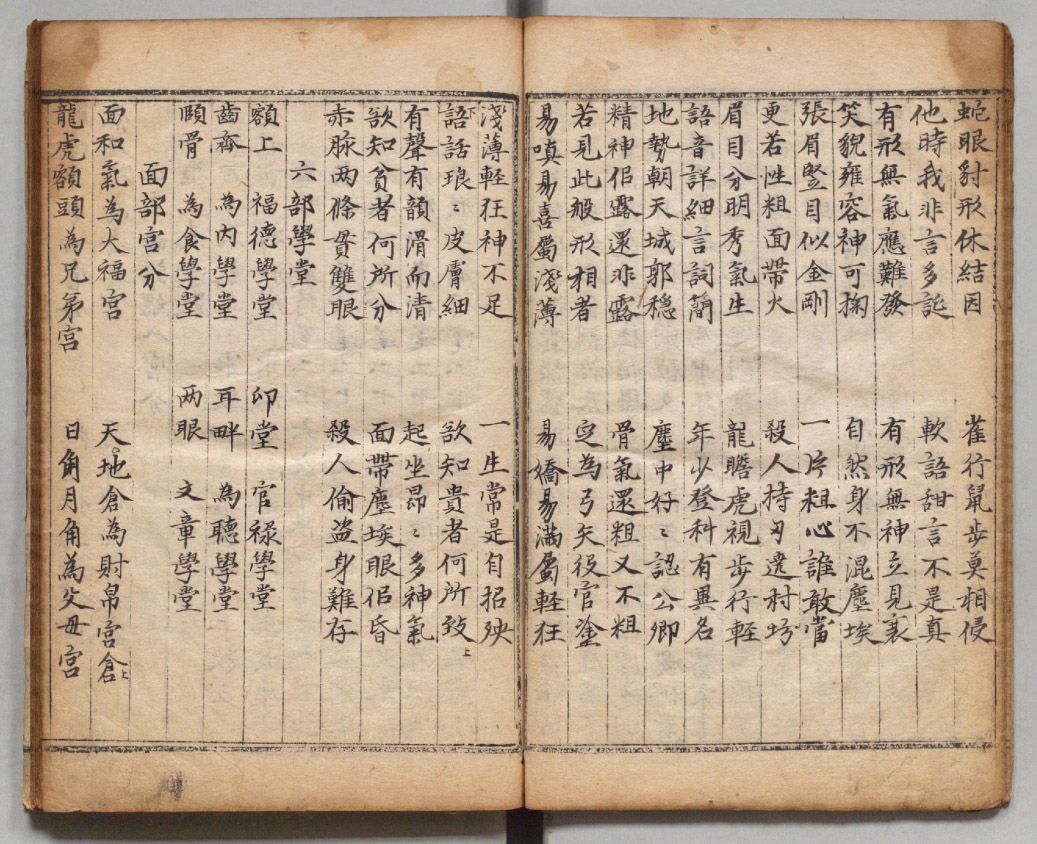 蛇眼豺形休結因　雀行鼠步莫相侵
他時我非言多誕　軟語甜言不是真
有形無氣應難發　有形無神立見衰
笑貌雍容神可掬　自然身不混塵埃
張眉竪目似金剛　一片粗心誰敢當
更若性粗面帶火　殺人持刃遶村坊
眉目分明秀氣生　龍瞻虎視步行輕
語音詳細言詞簡　年少登科有異名
地勢朝天城郭穏　塵中好〻認公卿
精神侣露還非露　骨氣還粗又不粗
若見此般形相者　定為弓矢役官塗
易嗔易喜屬淺薄　易嬌易滿屬軽狂
淺薄軽狂神不足　一生常是自招殃
語話琅〻皮膚細　欲知貴者何所致
有聲有韻滑而清　起坐昂〻多神氣
欲知貧者何所分　面帶塵埃眼侣昏
赤脉两條貫雙眼　殺人偷盗身難存
六部學堂
額上　福德學堂　印堂　官祿學堂
齒齊　為內學堂　耳畔　為聰學堂
頤骨　為食學堂　两眼　文章學堂
面部宮分
面和氣為大福宮　天地倉為財帛宮倉上
龍虎額頭為兄弟宮　日角月角為父母宮